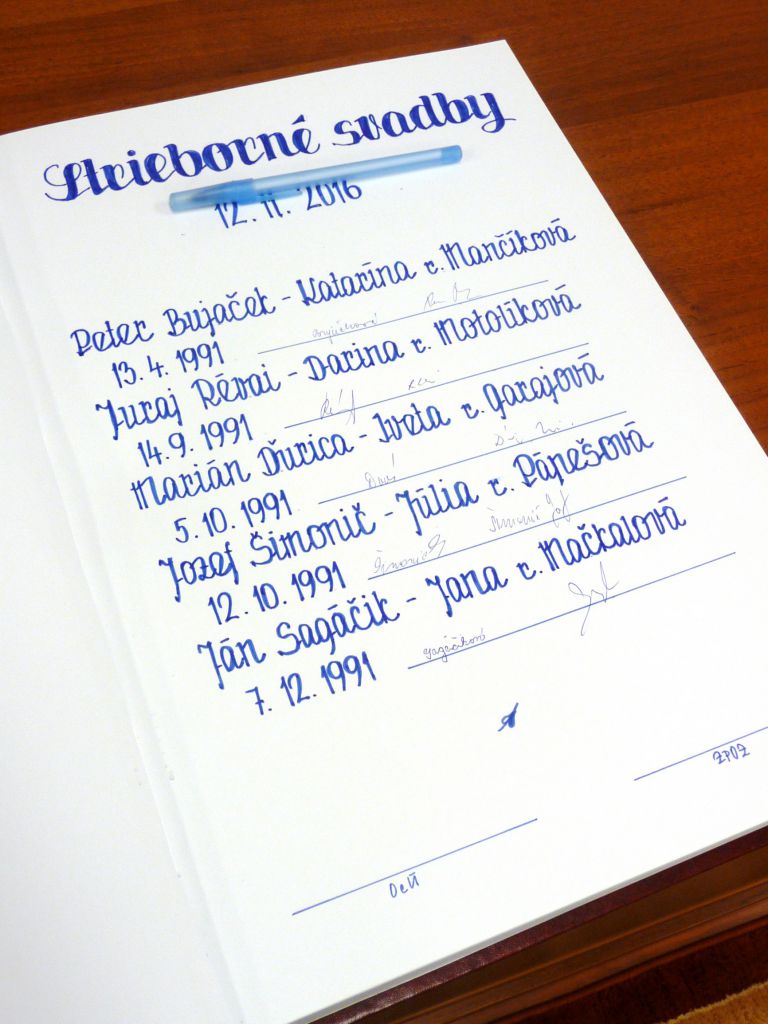 Strieborné svadby
12. 11. 2016
Peter Bujaček - Katarína r. Mančíková
13. 4. 1991
Juraj Révai - Darina r. Motolíková
14. 9. 1991
Marián Ďurica - Iveta r. Garajová
5. 10. 1991
Jozef Šimonič - Júlia r. Pápešová
12. 10. 1991
Šimonič
Ján Sagáčik - Jana r. Mačkalová
7. 12. 1991
Sagáčiková
ZPOZ
OcÚ